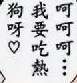 呵呵呵⋯
我要吃熱
狗呀♡